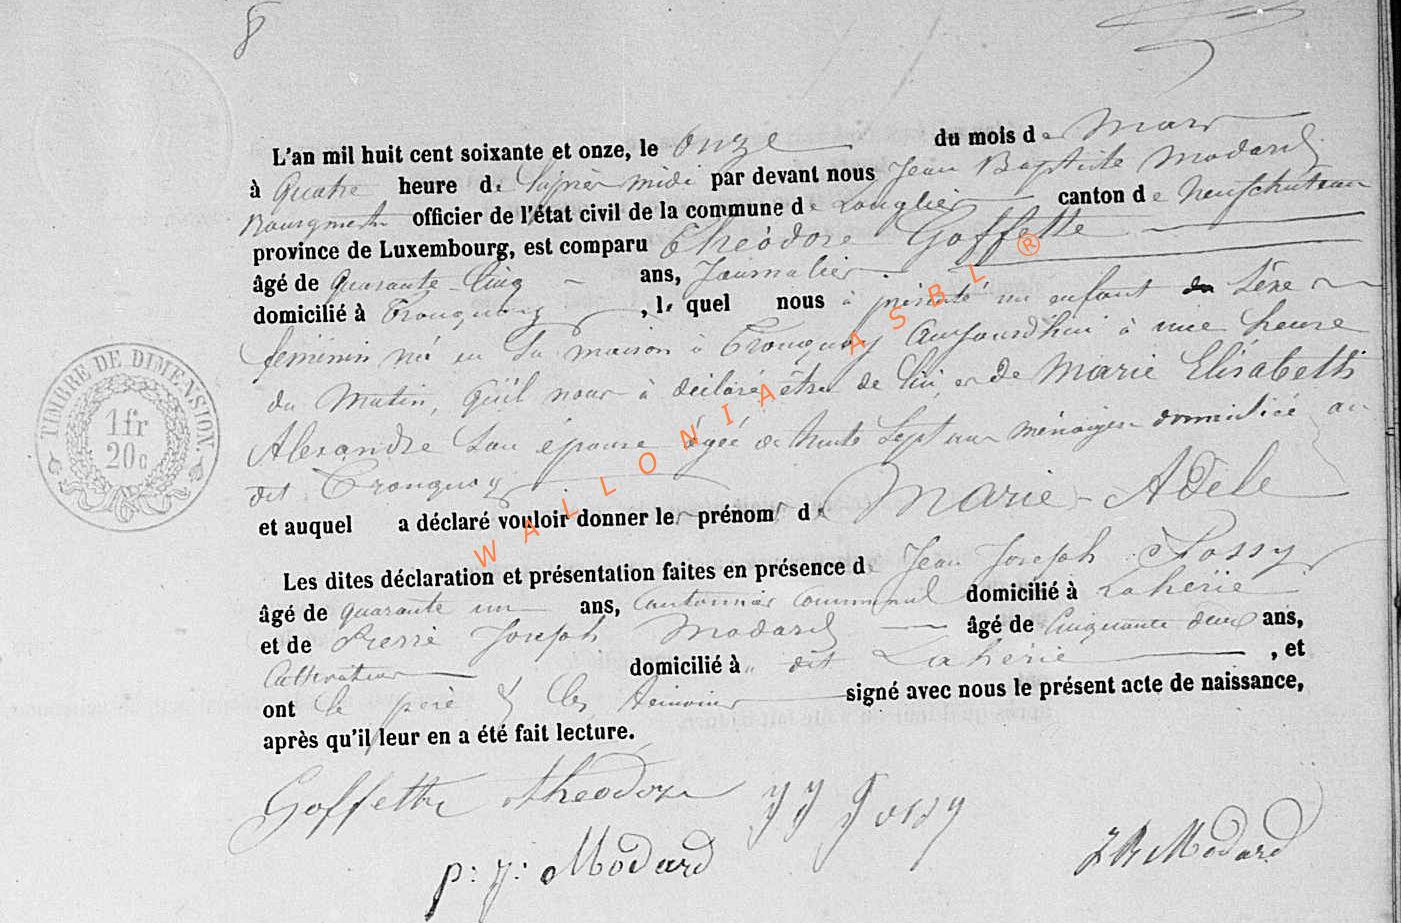 8
L'an mil huit cent soixante et onze, le Onze du mois de Mars
à Quatre heure de l'après midi par devant nous Jean Baptiste Modard
Bourgmestre officier de l'état civil de la commune de Longlier canton de Neufchateau
province de Luxembourg, est comparu Théodore Goffette
âgé de Quarante-Cinq ans, Journalier
domicilié à Tronquoy, lequel nous à présenté un enfant du Sexe
féminin né en sa maison à Tronquoy Aujourdhui à une heure
du Matin, qu'il nous à déclaré être de lui et de Marie Elisabeth
Alexandre Son épouse âgée de trente Sept ans ménagère domiciliée au
dit Tronquoy
et auquel a déclaré vouloir donner les prénoms de Marie-Adèle
Les dites déclaration et présentation faites en présence de Jean Joseph
âgé de quarante un ans, Cantonnier Communal domicilié à Laherie
et de Pierre Joseph Modard âgé de Cinquante deux ans,
Cultivateur domicilié à dit Laherie, et
ont le père & les témoins signé avec nous le présent acte de naissance,
après qu'il leur en a été fait lecture.
TIMBRE DE DIMENSION.
1 fr
20 c
WALLONIA ASBL ®
Goffette théodore
JJ
p: j: Modard
JB Modard